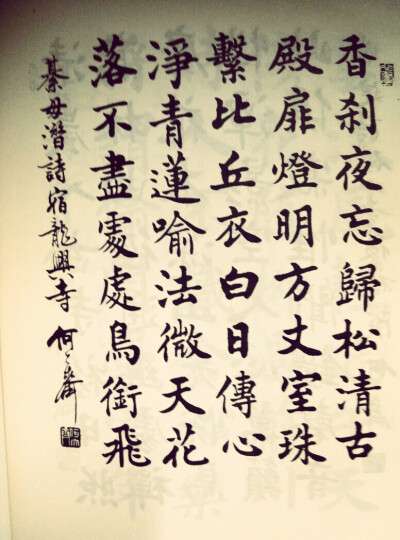 香刹夜忘歸松清古
殿扉燈明方丈室珠
繫比丘衣白日傳心
淨青蓮喻法微天花
落不盡處處鳥銜飛
綦毋潛詩宿龍興寺 何